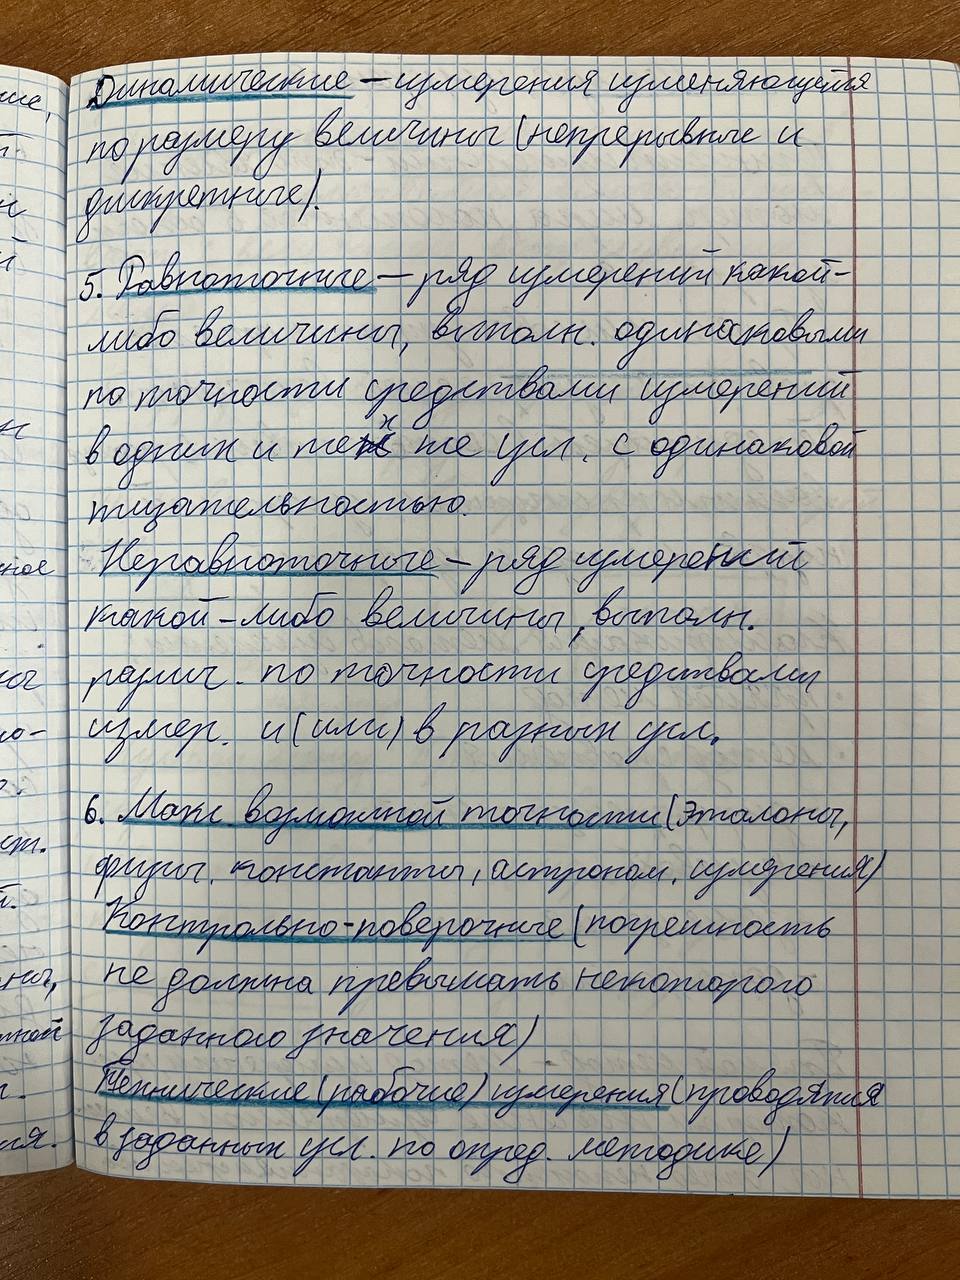 Динамические – измерения изменяющейся
по размеру величины (непрерывные и
дискретные).
5. Равноточные – ряд измерений какой-
либо величины, выполн. одинаковыми
по точности средствами измерений
в одних и тех же усл. с одинаковой
тщательностью.
Неравноточные – ряд измерений
какой-либо величины, выполн.
различ. по точности средствами
измер. и (или) в разных усл.
6. Макс. возможной точности (эталоны,
физич. константы, астроном. измерения)
Контрольно-поверочные (погрешность
не должна превышать некоторого
заданного значения)
Технические (рабочие) измерения (проводятся
в заданных усл. по опред. методике)